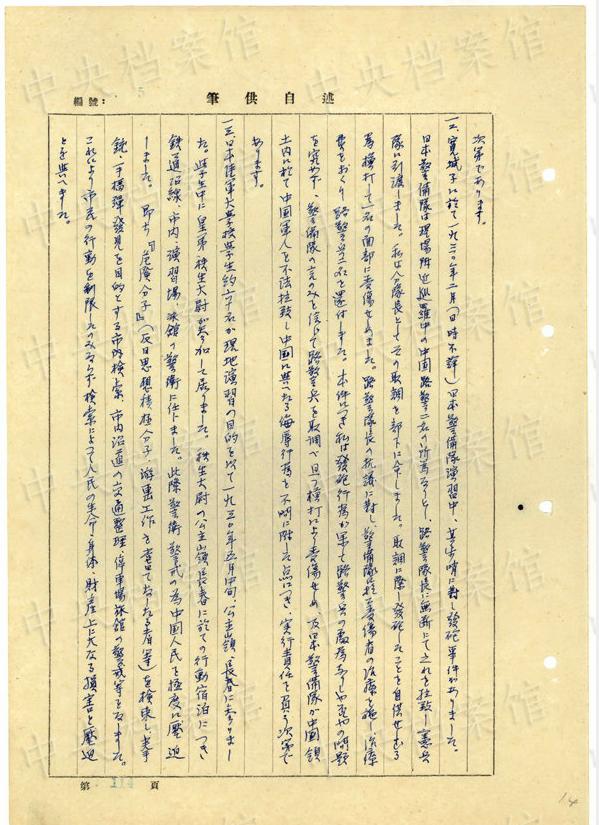 述自供筆
編號:
次第であります。
一二、寛城子に於て一九三〇年二月(日時不詳)日本警備隊演習中、其歩哨に対し発砲事件がありました。
日本警備隊は現場附近巡羅中の中国路警二名の所為なりとし、路警隊長に無断にて之れを拉致し憲兵
隊に引渡しました。私は分隊長としてその取調を部下に命しました。取調に際し発砲したことを自供せしむる
為、殴打して一名の面部に負傷せしめました。路警隊長の抗議に対し、警備隊は負傷者の治療を施し治療
費をおくり路警兵二名を還付しました。本件につき私は発砲行為が果して路警兵の處為なりしや否やの問題
を究めず、警備隊の言のみを信じて路警兵を取調べ且つ殴打により負傷せしめ、及日本警備隊が中国領
土内に於て中国軍人を不法拉致し中国に与へたる侮辱行為を不問に附した点につき、実行責任を負ふ次第で
あります。
一三、日本陸軍大学校学生約六十名が現地演習の目的を以て一九三〇年五月中旬、公主嶺、長春に参りまし
た。此学生中に皇弟秩父大尉が参加して居りました。秩父大尉の公主嶺、長春に於ての行動宿泊につき
鉄道沿線、市内、演習場、旅館の警衛に任しました。此際警衛警戒の為中国人民を極度に圧迫
しました。即ち『危険分子』(反日思想積極分子、游撃工作を書てなしたる者等)を検束し、拳
銃、手榴弾発見を目的とする市内検索、市内沿道の交通整理、停車場旅館の警戒等をなしました。
これにより市民の行動を制限したのみならず検索によって人民の生命、身体、財産上に大なる損害と圧迫
とを与へました。
第 114 頁
14
中央档案馆